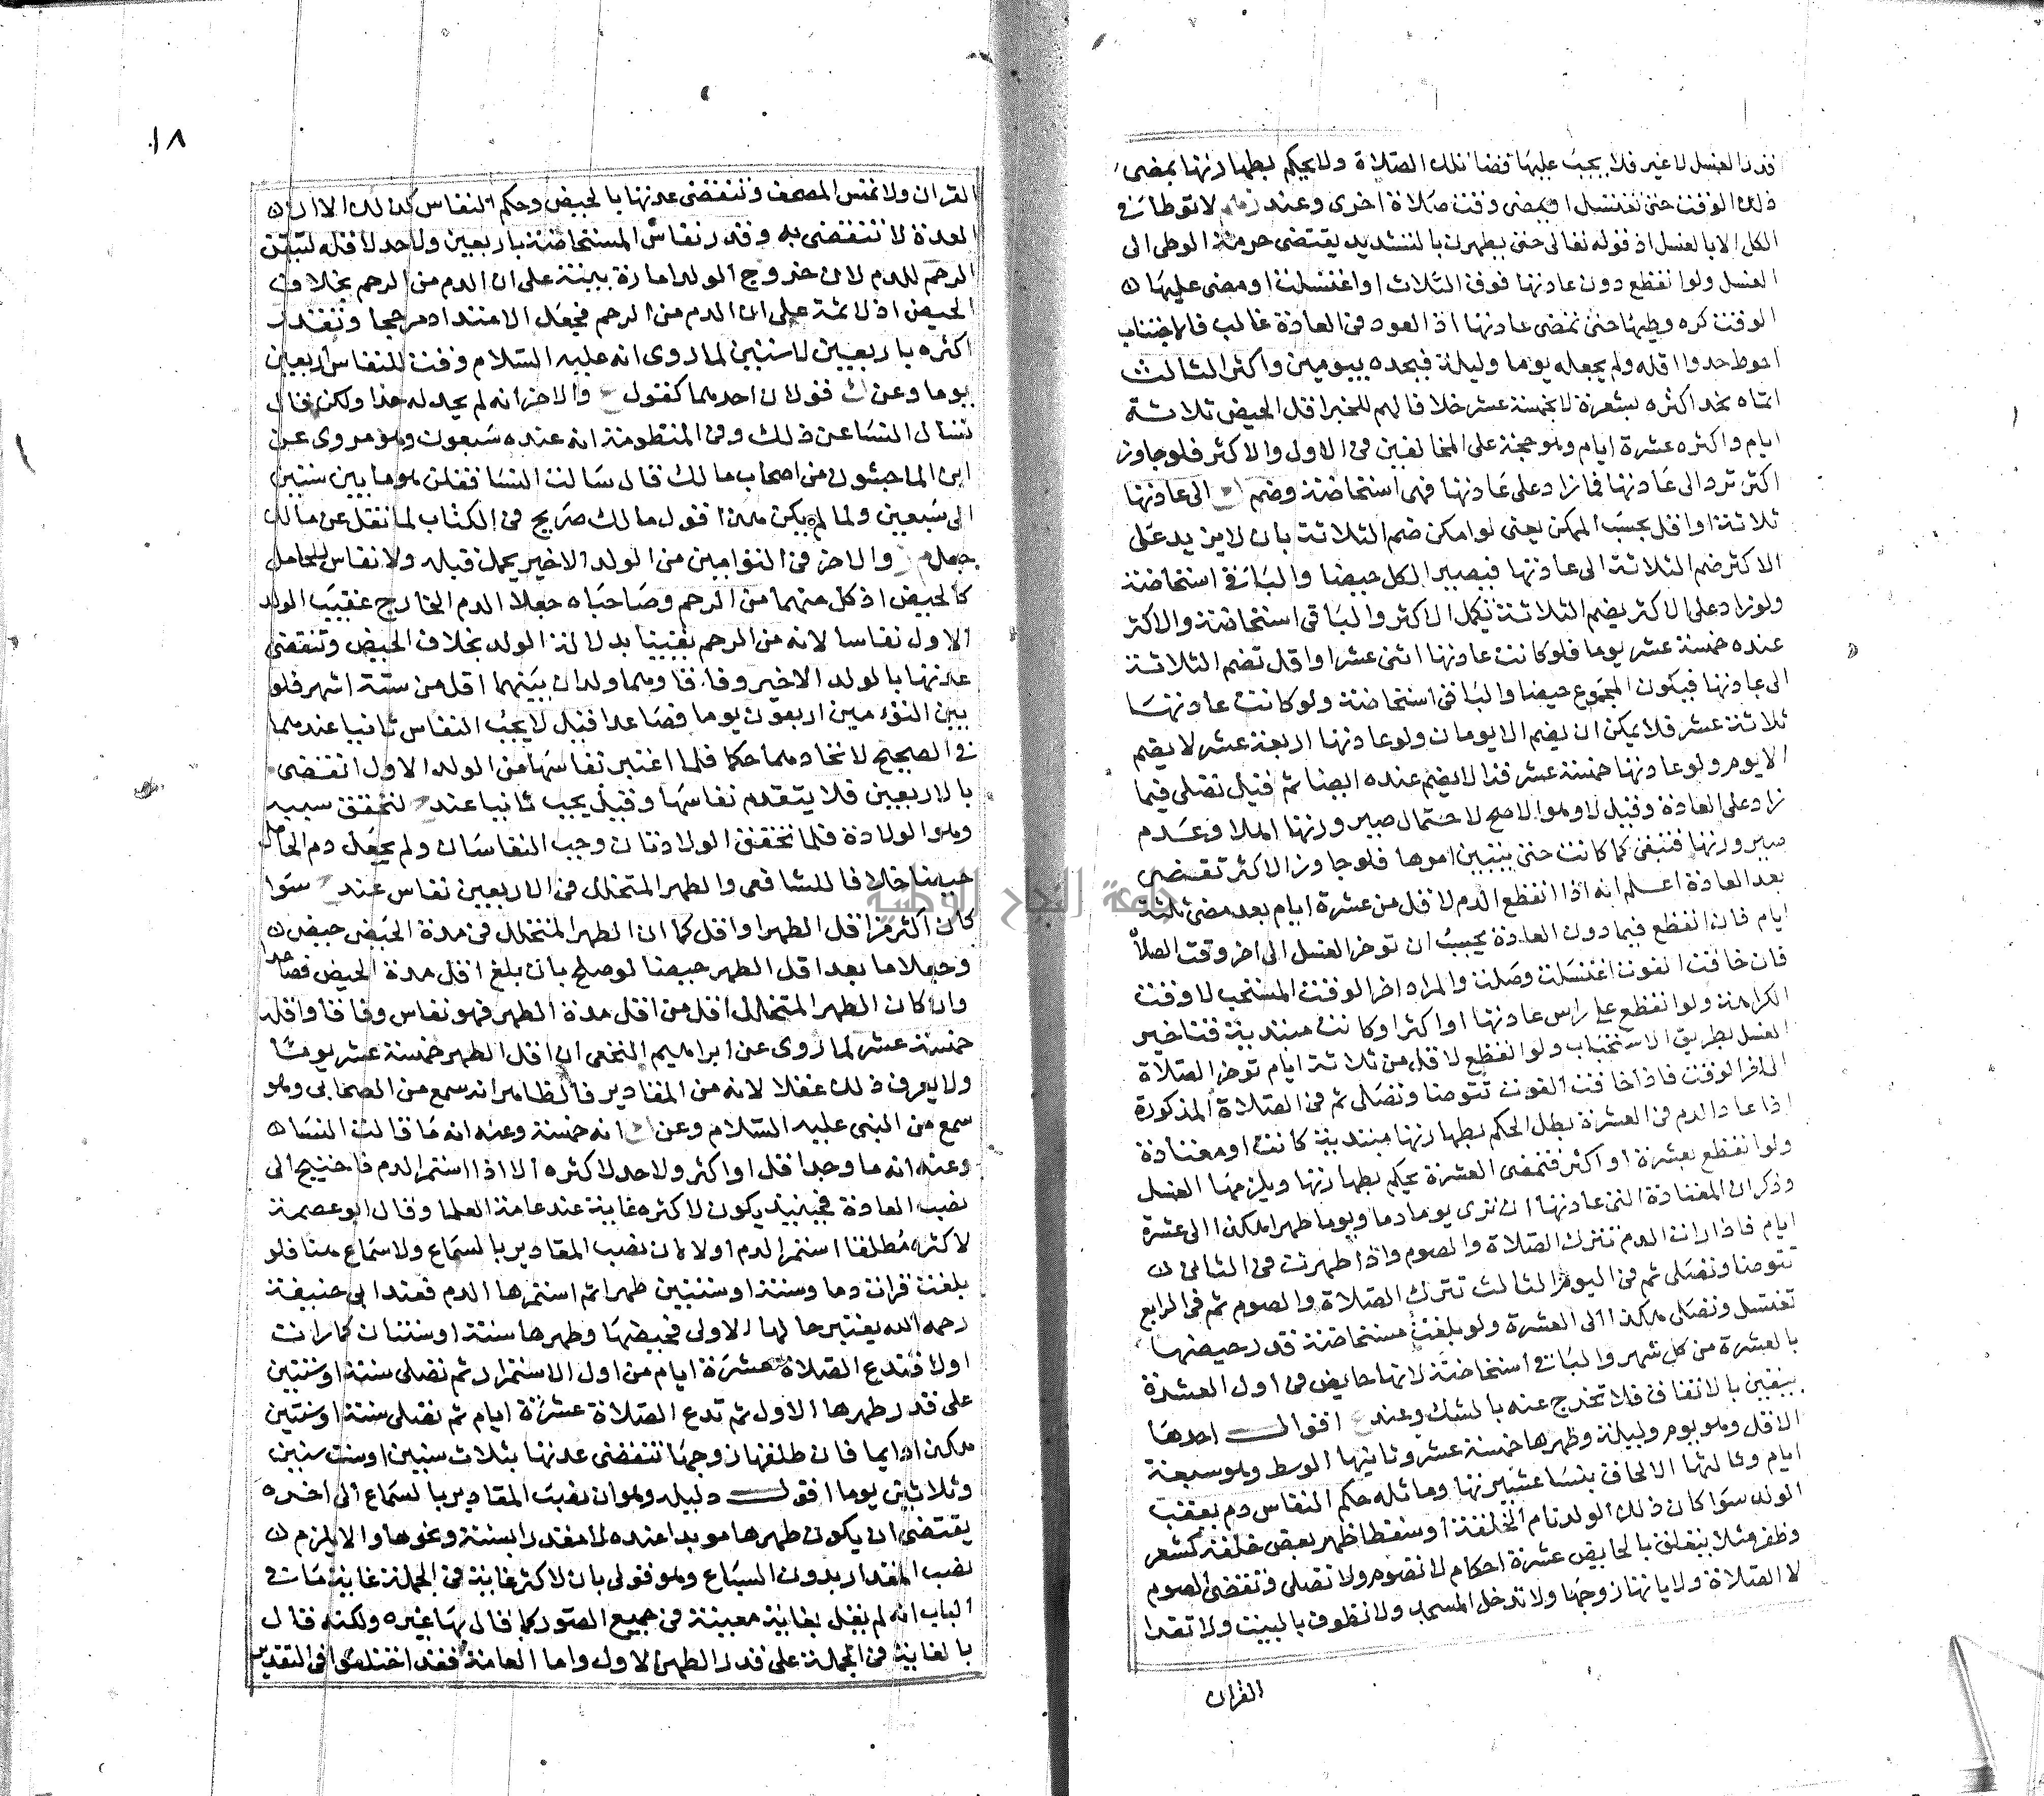 قدر الغسل لا غير فلا يجب عليها قضا تلك الصلاة ولا يحكم بطهارتها بمضي
ذلك الوقت حتى تغتسل او يمضى وقت صلاة اخرى وعند لا توطأ في
الكل الا بالغسل اذ قوله تعالى حتى يطهرن بالتشديد يقتضى حرمة الوطى الى
الغسل ولو انقطع دون عادتها فوق الثلاث او اغتسلت او مضى عليها
الوقت كره وطيها حتى تمضى عادتها اذ العود في العادة غالب فالاجتناب
احوط حدوا اقله ولم يجعله يوما وليلة فيحده بيومين واكثر الثالث
اتماه بحد اكثره بعشرة لا بخمسة عشر خلافا لهم للخبر اقل الحيض ثلاثة
ايام واكثره عشرة ايام وهو حجة على المخالفين في الاول والاكثر فلو جاوز
اكثر ترد الى عادتها فما زاد على عادتها فهى استحاضة وضم الى عادتها
ثلاثة او اقل بحسب الممكن يعنى لو امكن ضم الثلاثة بان لا يزيد على
الاكثر ضم الثلاثة الى عادتها فيصير الكل حيضا والباقي استحاضة
ولو زاد على الاكثر يضم الثلاثة تكمل الاكثر والباقى استحاضة والاكثر
عنده خمسة عشر يوما فلو كانت عادتها اثنى عشر او اقل تضم الثلاثة
الى عادتها فيكون المجموع حيضا والباقى استحاضة ولو كانت عادتها
ثلاثة عشر فلا يمكن ان يضم الا يومان ولو عادتها اربعة عشر لا يضم
الا يوم ولو عادتها خمسة عشر فذا لا يضم عنده ايضا ثم قيل تصلى فيما
زاد على العادة وقيل لا وهو الاصح لاحتمال صيرورتها اهلا وعدم
صيرورتها فتبقى كما كانت حتى يتبين امرها فلو جاوز الاكثر تقضى
بعد العادة اعلم انه اذا انقطع الدم لاقل من عشرة ايام بعد مضى ثلثة
ايام فان انقطع فيما دون العادة يجب ان توخر الغسل الى اخر وقت الصلاة
فان خافت الفوت اغتسلت وصلت والمراد اخر الوقت المستحب لا وقت
الكراهة ولو انقطع على راس عادتها او اكثر او كانت مبتدية فتاخير
الغسل بطريق الاستحباب ولو انقطع لاقل من ثلاثة ايام توخر الصلاة
الى اخر الوقت فاذا خافت الفوت تتوضا وتصلى ثم في الصلاة المذكورة
اذا عاد الدم في العشرة بطل الحكم بطهارتها مبتدية كانت او معتادة
ولو انقطع بعشرة او اكثر فتمضى العشرة يحكم بطهارتها ويلزمها الغسل
وذكر ان المعتادة التى عادتها ان ترى يوما دما ويوما طهرا هكذا الى عشرة
ايام فاذا رات الدم تترك الصلاة والصوم واذا طهرت في الثانى
تتوضا وتصلى ثم في اليوم الثالث تترك الصلاة والصوم ثم في الرابع
تغتسل وتصلى هكذا الى العشرة ولو بلغت مستحاضة قدر حيضها
بالعشرة من كل شهر والباقي استحاضة لانها حايض في اول العشرة
بيقين بالاتفاق فلا تخرج عنه بالشك وعند اقوال احدها
الاقل وهو يوم وليلة وطهرها خمسة عشر وثانيها الوسط وهو سبعة
ايام وثالثها الالحاق بنسا عشيرتها وماثله حكم النفاس دم يعقب
الولد سوا كان ذلك الولد تام الخلقة او سقطا ظهر بعض خلقه كشعر
وظفر مثلا يتعلق بالحايض عشرة احكام لا تصوم ولا تصلى وتقضى الصوم
لا الصلاة ولا ياتها زوجها ولا تدخل المسجد ولا تطوف بالبيت ولا تقرا
القران
١٨
القران ولا تمس المصحف وتنقضى عدتها بالحيض وحكم النفاس كذلك الا ان
العدة لا تنقضى به وقدر نفاس المستحاضة باربعين ولا حد لاقله لتيقن
الرحم للدم لان خروج الولد امارة بينة على ان الدم من الرحم بخلاف
الحيض اذ لا ثمة على ان الدم من الرحم فجعل الامتداد مرجحا وتقدر
اكثره باربعين لا ستين لما روى انه عليه السلام وقت للنفاس اربعين
يوما وعن قولان احدهما كقول والاخر انه لم يحد له حدا ولكن قال
تسال النسا عن ذلك وفي المنظومة انه عنده سبعون وهو مروى عن
ابن الماجشون من اصحاب مالك قال سالت النسا فقلن هو ما بين ستين
الى سبعين ولما لم يكن هذا قول مالك صريح في الكتاب لما نقل عن مالك
جعل والاخر في التوامين من الولد الاخير يجعل قبله ولا نفاس للحامل
كالحيض اذ كل منهما من الرحم وصاحباه جعلا الدم الخارج عقيب الولد
الاول نفاسا لانه من الرحم يقينا بدلالة الولد بخلاف الحيض وتنقضى
عدتها بالولد الاخير وفاقا وهما ولدان بينهما اقل من ستة اشهر فلو
بين التوءمين اربعون يوما فصاعدا قيل لا يجب النفاس ثانيا عندهما
في الصحيح لاتحادهما حكما فلما اعتبر نفاسها من الولد الاول انقضى
بالاربعين فلا يتقدم نفاسها وقيل يجب ثانيا عند لتحقق سببه
وهو الولادة فلما تحقق الولادتان وجب النفاسان ولم يجعل دم الحامل
حيضا خلافا للشافعى والطهر المتخلل في الاربعين نفاس عند سوا
كان اكثر من اقل الطهر او اقل كما ان الطهر المتخلل في مدة الحيض حيض
وجعلا ما بعد اقل الطهر حيضا لو صلح بان بلغ اقل مدة الحيض فصاعدا
وان كان الطهر المتخلل اقل من اقل مدة الطهر فهو نفاس وفاقا واقله
خمسة عشر لما روى عن ابراهيم النخعى ان اقل الطهر خمسة عشر يوما
ولا يعرف ذلك عقلا لانه من المقادير فالظاهر انه سمع من الصحابى وهو
سمع من النبى عليه السلام وعن انه خمسة وعنه انه ما قالت النسا
وعنه انه ما وجد اقل او اكثر ولا حد لاكثره الا اذا استمر الدم فاحتيج الى
نصب العادة فحينيذ يكون لاكثره غاية عند عامة العلما وقال ابو عصمة
لاكثره مطلقا استمر الدم اولا لان نصب المقادير بالسماع ولا سماع هنا فلو
بلغت فرات دما وستة او سنتين طهرا ثم استمرها الدم فعند ابى حنيفة
رحمه الله يعتبر حالها الاولى فحيضها وطهرها سنة او سنتان كما رات
اولا فتدع الصلاة عشرة ايام من اول الاستمرار ثم تصلى سنة او سنتين
على قدر طهرها الاول ثم تدع الصلاة عشرة ايام ثم تصلى سنة او سنتين
هكذا دايما فان طلقها زوجها تنقضى عدتها بثلاث سنين او ست سنين
وثلاثين يوما اقول دليله وهو ان نصب المقادير بالسماع الى اخره
يقتضى ان يكون طهرها موبدا عنده لا مقدرا بسنة ونحوها والا يلزم
نصب المقدار بدون السماع وهو قولى بان لاكثر غاية في الجملة غاية ما في
الباب انه لم يقل بغاية معينة في جميع الصور كما قال بها غيره ولكنه قال
بالغاية في الجملة على قدر الطهر الاول واما العامة فقد اختلفوا في التقدير